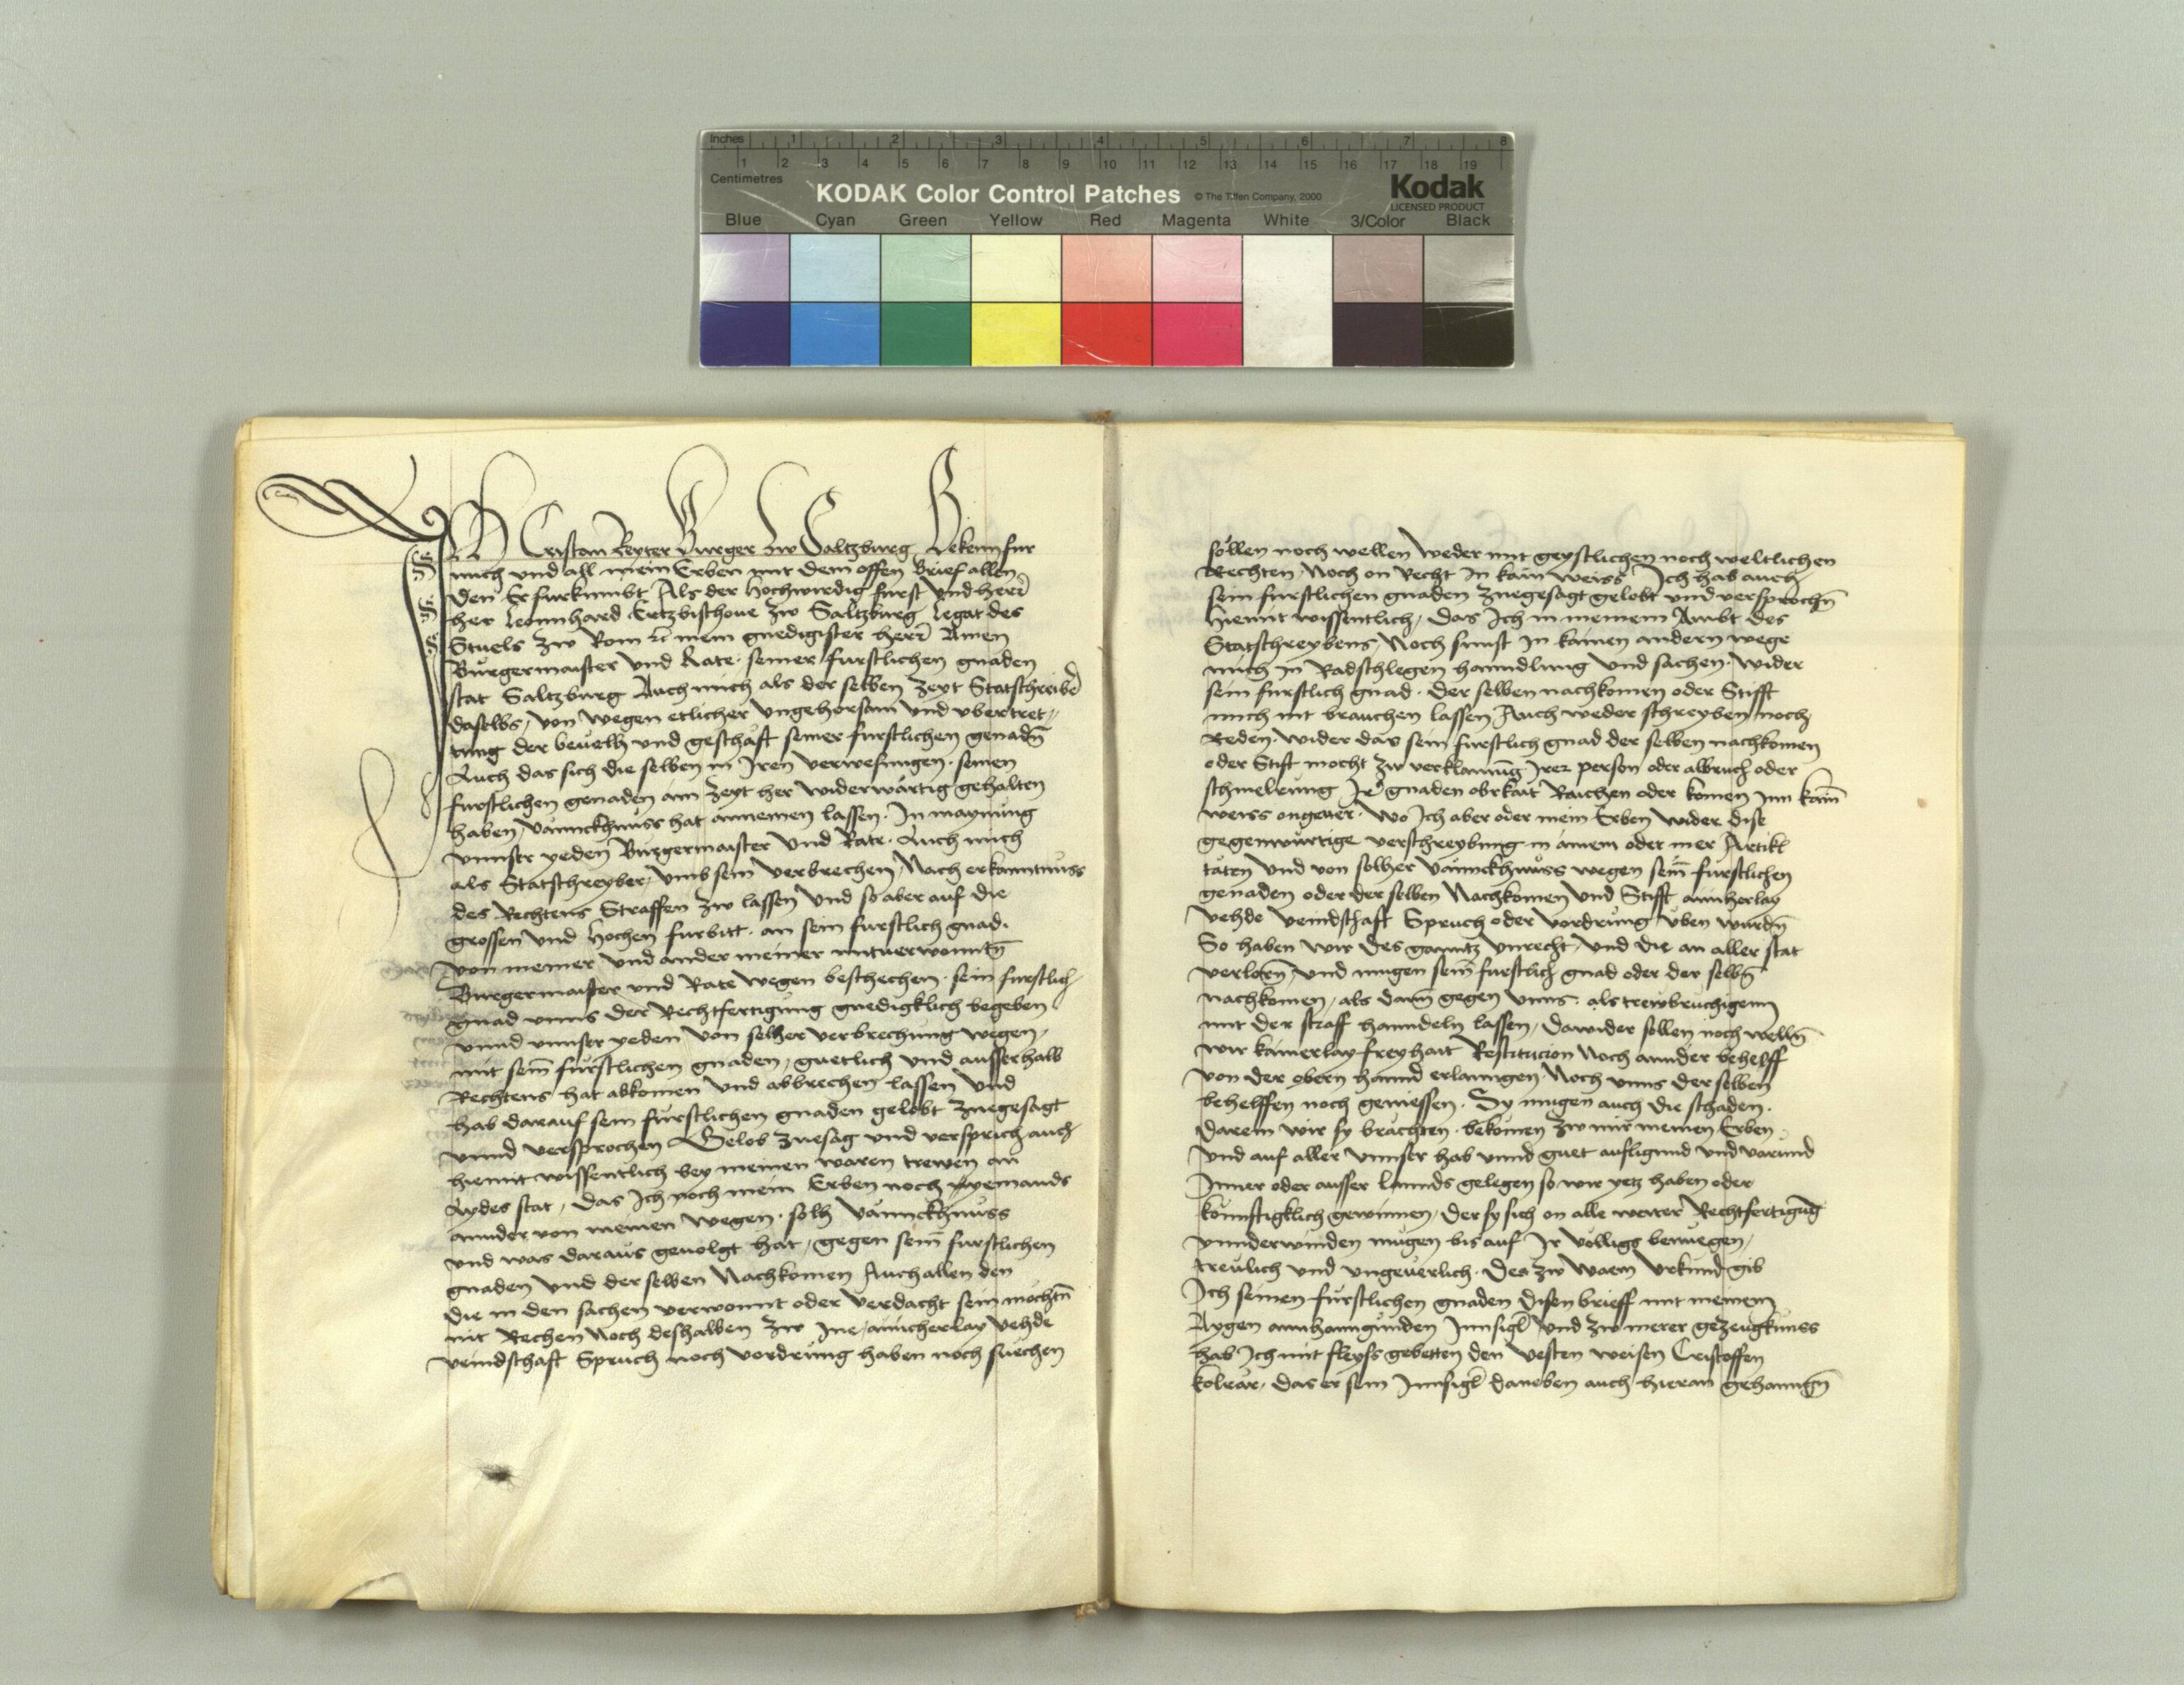 Inches 1 2 3 4 5 6 7 8
1 2 3 4 5 6 7 8 9 10 11 12 13 14 15 16 17 18 19
Centimetres
KODAK Color Control Patches © The Tiffen Company, 2000 Kodak
LICENSED PRODUCT
Blue Cyan Green Yellow Red Magenta White 3/Color Black
Ich Cristan Reyter Burger zw Saltzburg Bekenn fur
mich und all mein Erben mit dem offen brief allen
den Er furkumbt Als der Hochwirdig furst und herr
her Leonnhard Ertzbischove zw Saltzburg Legat des
Stuels zw Rom mein gnedigister herr Ainen
Burgermaister und Rate seiner furstlichen gnaden
stat Saltzburg Auch mich als der selben zeyt Statschreiber
daselbs, von wegen etlicher ungehorsam und ubertret„
tung der bevelh und geschäft seiner furstlichen genadn
Auch das sich die selben in Iren verwesungen seinen
furstlichen genaden ain zeyt her widerwärtig gehalten
haben, Vännckhnuss hat annemen lassen. In maynung
unnser yeden Burgermaister und Rate. Auch mich
als Statschreyber, umb sein verbrechen, Nach erkanntnuss
des Rechtens Straffen zw lassen und so aber auf die
grossen und Hochen furbitt. an sein furstlich gnad.
von meiner und ander meiner mitverwonntn
Burgermaister und Rate wegen beschechen. sein furstlich
gnad unns der Rechtfertigung gnedigklich begeben
unnd unnser yeden von solher verbrechung wegen,
mit sein furstlichen gnaden, guetlich und ausserhalb
Rechtens hat abkomen und abbrechen lassen und
hab darauf sein furstlichen gnaden gelobt zuegesagt
unnd versprochen Gelob zuesag und versprich auch
hiemit wissentlich bey meinen waren trewen an
Aydes stat, das Ich noch mein Erben noch yemands
annder von meinen wegen. solh Vännckhnuss
und was daraus gevolgt hat, gegen sein furstlichen
gnaden und der selben Nachkomen Auch allen den
die in den sachen verwonnt oder verdacht sein mochtn
nit Rechen Noch deshalben zw Ine, ainicherlay Vehde
veindschaft Spruch noch vordrung haben noch suechen
söllen noch wellen weder mit geystlichen noch weltlichen
Rechten, Noch on Recht In kain weiss Ich hab auch
sein furstlichen gnaden zuegesagt gelobt und versprochn
hiemit wissentlich, das Ich in meinem Ambt des
Statschreybens, Noch sunst in kainen andern wege
mich in Radschlegen hanndlung und sachen. wider
sein furstlich gnad. der selben nachkomen oder Stifft
mich nit brauchen lassen, Auch weder schreyben noch
Reden. wider das sein furstlich gnad der selben nachkomen
oder Stift mocht zw verklainung Irer person oder abbruch oder
schmelrung Ir gnaden obrkait Raichen oder komen inn kain
weiss ongever. wo Ich aber oder mein Erben wider dise
gegenwurtige verschreybung in ainem oder mer Artikl
täten und von solher Vännckhnuss wegen sein furstlichen
genaden oder der selben Nachkomen und Stifft ainicherlay
vehde veindschaft Spruch oder vordrung üben wurdn
So haben wir des ganntz unrecht, und die an aller stat
verlorn, und mugen sein furstlich gnad oder der selbn
nachkomen, als dann gegen unns. als trewbruchigenn
mit der straff hanndeln lassen, dawider sollen noch welln
wir kainerlay freyhait Restitucion Noch annder behelff
von der obern hannd erlanngen. Noch unns der selben
behelffen noch geniessen. Sy mugen auch die schaden.
darein wir sy brächten. bekomen zw mir meinen Erben
und auf aller unnser hab unnd guet aufligund und varund
Inner oder ausser lannds gelegen so wir yetz haben oder
kunnftigklich gewinnen, der sy sich on alle weiter Rechtfertigung
unnderwinden mugen bis auf Ir volligs benuegen,
treulich und ungeverlich. Des zw warn urkund gib
Ich seinen furstlichen gnaden disen brieff mit meinem
Aygen annhanngunden Innsigl und zw merer gezeugknuss
hab Ich mit fleyss gebetten den vesten weisen Cristoffen
kolrär, das er sein Innsigl daneben auch hieran gehanngn